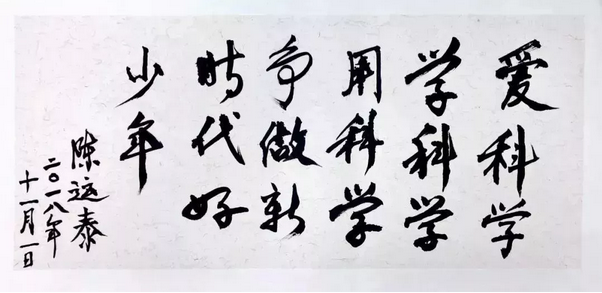 爱科学
学科学
用科学
争做新
时代好
少年
陈运泰
二〇一八年
十一月一日